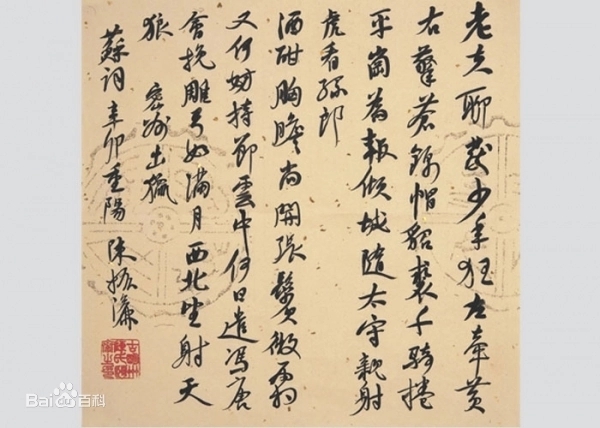 老夫聊發少年狂左牽黃
右擎蒼錦帽貂裘千騎捲
平崗為報傾城隨太守親射
虎看孫郎
酒酣胸膽尚開張鬢微霜
又何妨持節雲中何日遣馮唐
會挽雕弓如滿月西北望射天
狼 密州出獵
蘇詞辛卯重陽 陳振濂
Bai百科